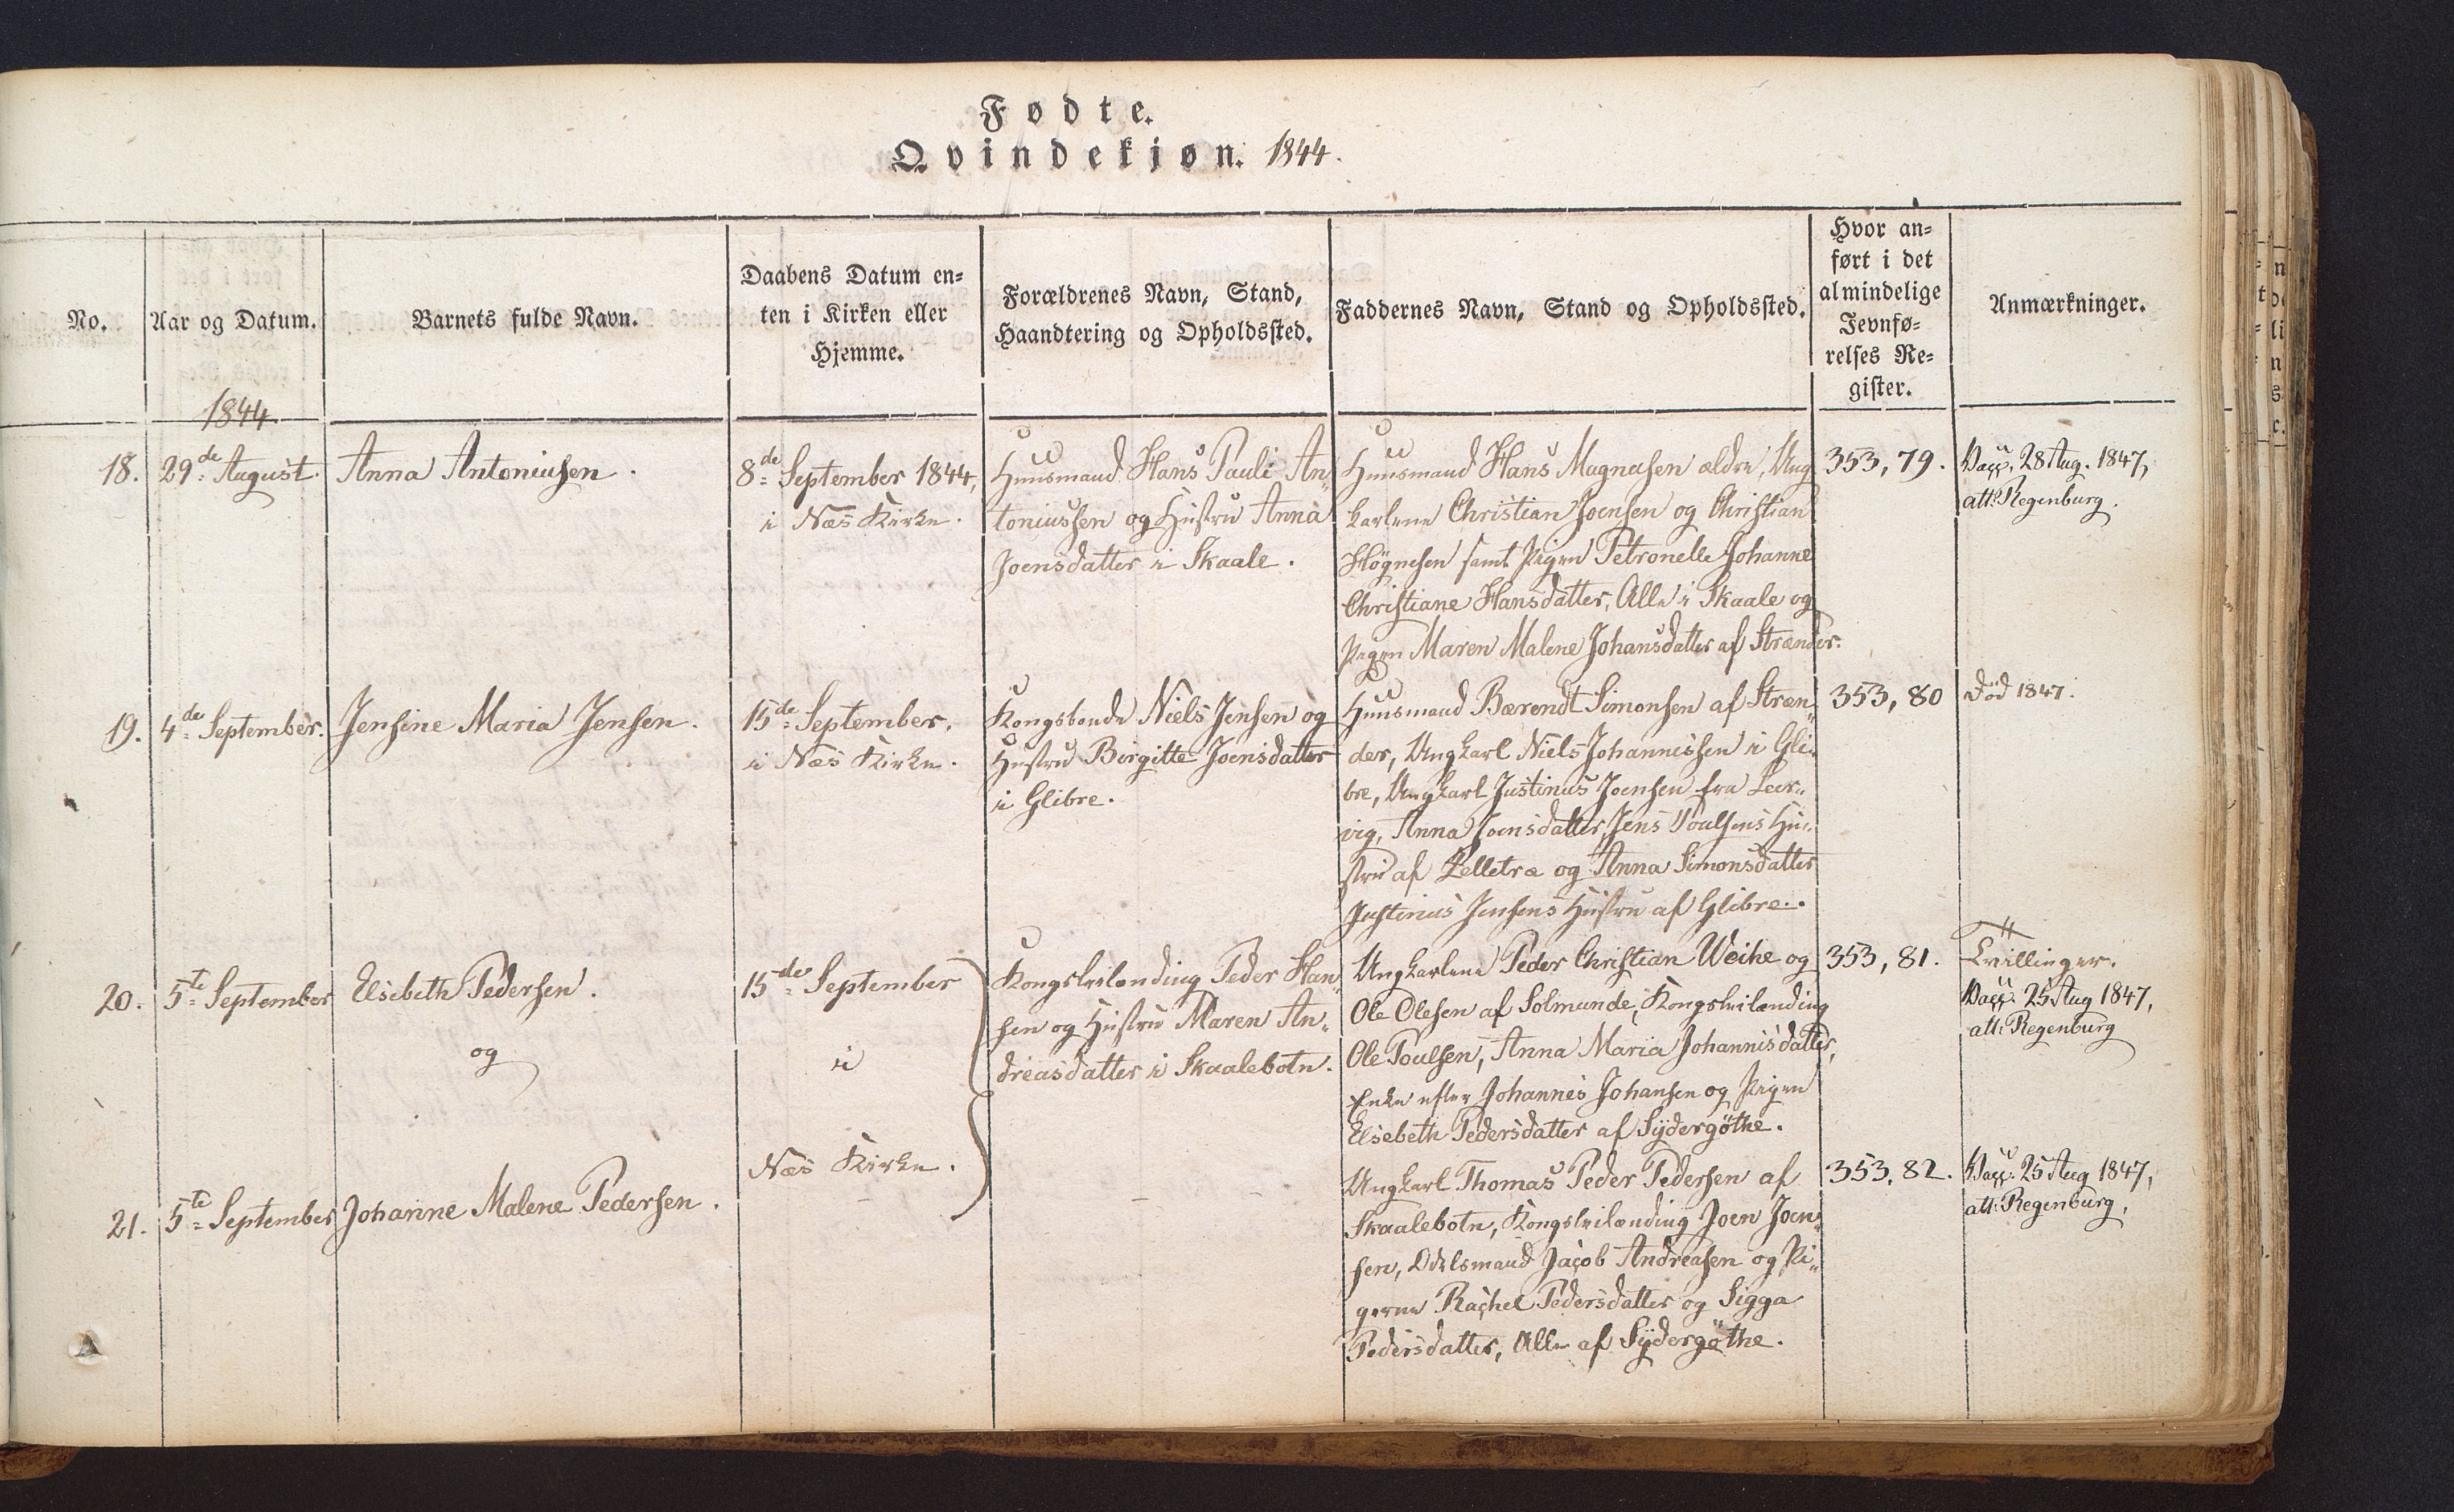 Fødte.
Qvindekjøn. 1844.
No.
Aar og Datum.
Barnets fulde Navn.
Daabens Datum en=
ten i Kirken eller
Hjemme.
Forældrenes Navn, Stand,
Haandtering og Opholdssted.
Faddernes Navn, Stand og Opholdssted.
Hvor an=
ført i det
almindelige
Jevnfø=
relses Re=
gister.
Anmærkninger.
1844
18.
29de August.
Anna Antoniusen.
8de September 1844,
i Næs Kirke.
Huusmand Hans Pauli An„
toniussen og Hustru Anna
Joensdatter i Skaale.
Huusmand Hans Magnusen ældre, Ung
karlene Christian Joensen og Christian
Høgnesen samt Pigen Petronelle Johanne
Christiane Hansdatter, Alle i Skaale og
Pigen Maren Malene Johansdatter af Strænder.
353, 79.
Vacc. 28 Aug. 1847,
att: Regenburg.
19.
4de September.
Jensine Maria Jensen.
15de September.
i Næs Kirke.
Kongsbonde Niels Jensen og
Hustru Birgitte Joensdatter
i Glibre.
Huusmand Bærendt Simonsen af Stræn„
der, Ungkarl Niels Johannissen i Gli„
bre, Ungkarl Justinus Joensen fra Leer„
vig, Anna Joensdatter, Jens Poulsens Hu„
stru af Selletræ og Anna Simonsdatter
Justinus Jensens Hustru af Glibre.
353, 80
Død 1847.
20.
5te September
Elsebeth Pedersen.
og
15de September
i
Næs Kirke.
Kongsleilænding Peder Han„
sen og Hustru Maren An„
dreasdatter i Skaalebotn.
Ungkarlene Peder Christian Weihe og
Ole Olesen af Solmunde, Kongsleilænding
Ole Poulsen, Anna Maria Johannisdatter,
Enke efter Johannes Johansen og Pigen
Elsebeth Pedersdatter af Sydergøthe.
353, 81.
Tvillinger.
Vacc. 25 Aug 1847,
att: Regenburg
21.
5te September
Johanne Malene Pedersen.
Ungkarl Thomas Peder Pedersen af
Skaalebotn, Kongsleilænding Joen Joen„
sen, Odelsmand Jacob Andreasen og Pi„
gerne Rachel Pedersdatter og Sigga
Pedersdatter, Alle af Sydergøthe.
353, 82.
Vacc. 25 Aug 1847,
att: Regenburg,